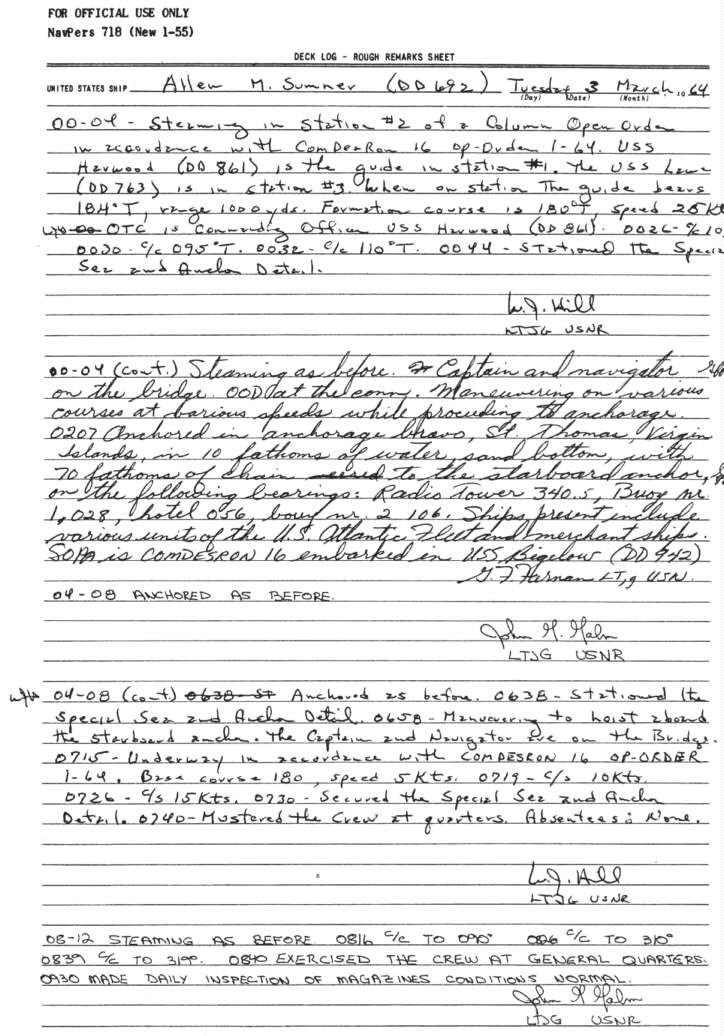 FOR OFFICIAL USE ONLY
NavPers 718 (New 1-55)
DECK LOG - ROUGH REMARKS SHEET
UNITED STATES SHIP Allen M. Sumner (DD 692) Tuesday 3 March, 1964
(Day) (Date) (Month)
00-04 - Steaming in station #2 of a Column Open Order
in accordance with ComDesRon 16 op-Order 1-64. USS
Harwood (DD 861) is the guide in station #1. The USS
(DD 763) is in station #3. When on station The guide bears
184°T, range 1000 yds. Formation course is 180°T, speed 25 K
OTC is Commanding Officer USS Harwood (DD 861). 0026- c/c 10
0030- c/c 095°T. 0032- c/c 110°T. 0044 - Stationed the Specia
Sea and Anchor Detail.
W.J. Hill
LTJG USNR
00-04 (cont.) Steaming as before. Captain and navigator
on the bridge. OOD at the conn. Maneuvering on various
courses at barious speeds while proceeding to anchorage.
0207 Anchored in anchorage bravo, St. Thomas, Virgin
Islands, in 10 fathoms of water, sand bottom, with
70 fathoms of chain to the starboard anchor,
on the following bearings: Radio Tower 340.5, Buoy nr.
1, 028, hotel 056, bouy nr. 2 106. Ships present include
various units of the U.S. Atlantic Fleet and merchant ships.
SOPA is COMDESRON 16 embarked in USS Bigelow (DD 942)
G. F. Farnan LTjg USN.
04-08 ANCHORED AS BEFORE.
John H. Halm
LTJG USNR
04-08 (cont) 0638-ST Anchored as before. 0638 - Stationed the
Special Sea and Anchor Detail. 0658 - Maneuvering to hoist aboard
the starboard anchor. The Captain and Navigator are on the Bridge.
0715 - Underway in accordance with COMDESRON 16 OP-ORDER
1-64. Base course 180, speed 5 Kts. 0719 - c/s 10 Kts.
0726 - c/s 15 Kts. 0730 - Secured the Special Sea and Anchor
Detail. 0740 - Mustered the Crew at quarters. Absentees: None.
W.J. Hill
LTJG USNR
08-12 STEAMING AS BEFORE. 0816 c/c TO 090° 0826 c/c TO 310°
0839 c/c TO 319°. 0840 EXERCISED THE CREW AT GENERAL QUARTERS.
0930 MADE DAILY INSPECTION OF MAGAZINES CONDITIONS NORMAL.
John H Halm
LTJG USNR